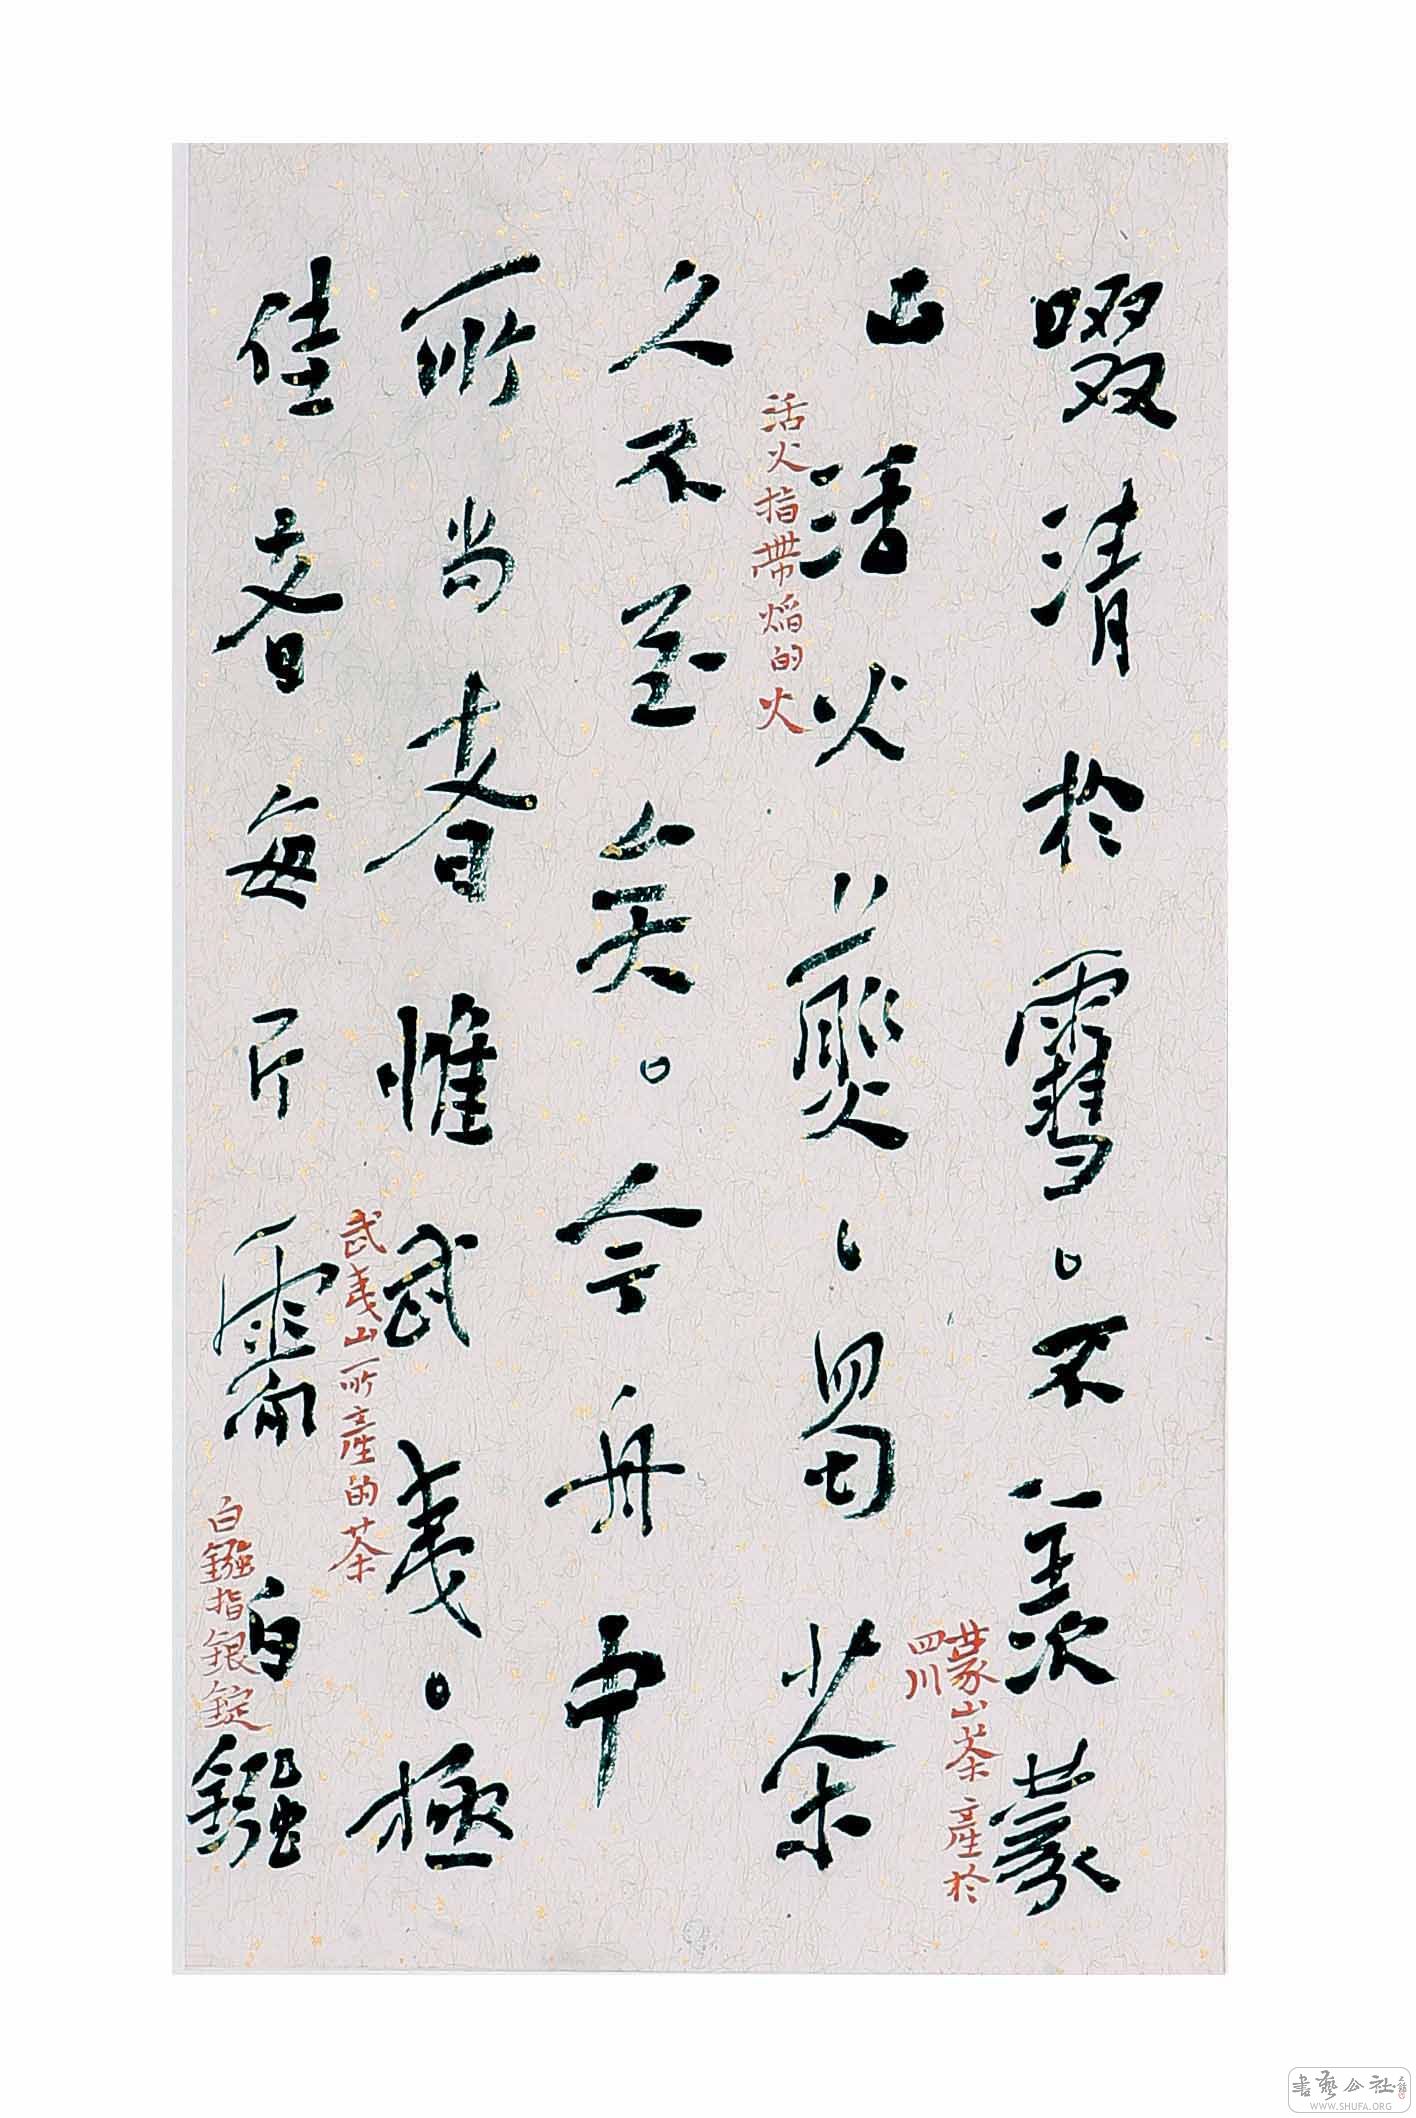 啜清於雪、不羨蒙
蒙山茶產於
四川
山活火爇、蜀茶
活火指帶焰的火
久不至矣。今舟中
所尚者惟武夷。極
武夷山所產的茶
佳者每斤需白鏹
白鏹指銀錠
書藝公社
WWW.SHUFA.ORG